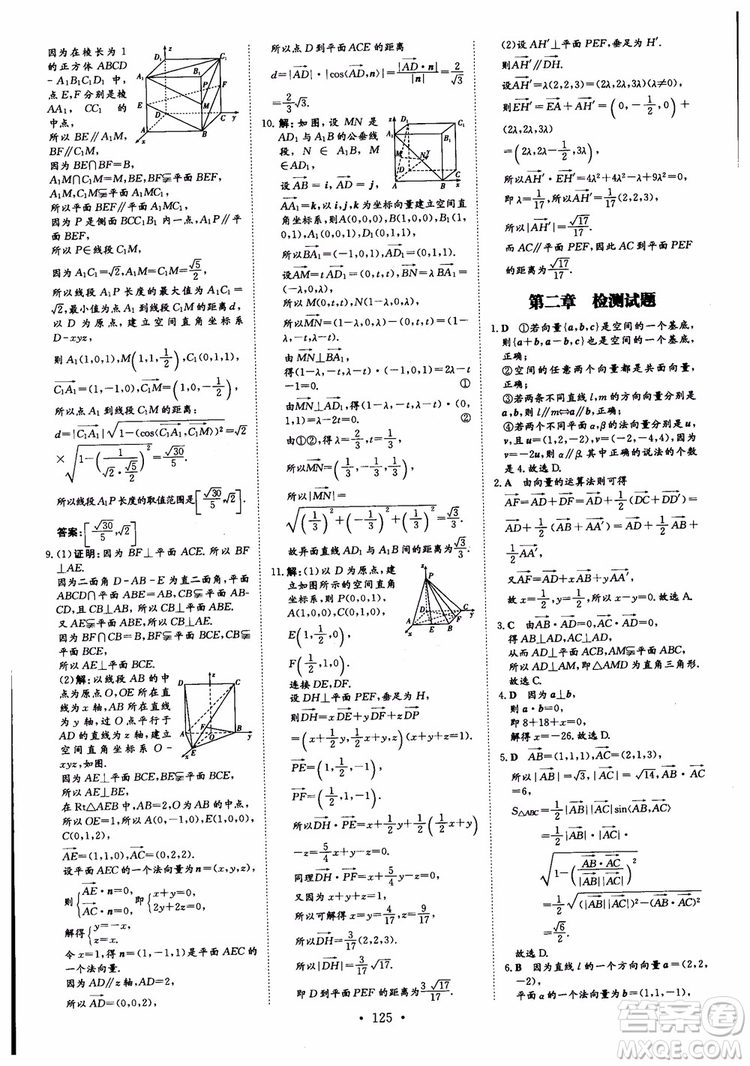 因为在棱长为 1
的正方体 ABCD
-A₁B₁C₁D₁ 中,
点 E,F 分别是棱
AA₁, CC₁ 的
中点,
所以 BE∥A₁M,
BF∥C₁M.
因为 BE∩BF=B,
A₁M∩C₁M=M,BE,BF⊊平面 BEF,
A₁M,C₁M⊊平面 A₁C₁M.
所以平面 BEF∥平面 A₁C₁M.
因为 P 是侧面 BCC₁B₁ 内一点,A₁P∥平面
BEF,
所以 P∈线段 C₁M.
因为 A₁C₁=√2,A₁M=C₁M=√5/2,
所以线段 A₁P 长度的最大值为 A₁C₁=√2.
因为点 A₁ 到线段 C₁M 的距离的最小值 d,
以 D 为原点,建立空间直角坐标系
D-xyz,
则 A₁(1,0,1),M(1,1,1/2),C₁(0,1,1),
C₁A₁=(1,-1,0),C₁M=(1,0,-1/2),
所以点 A₁ 到线段 C₁M 的距离:
d=|C₁A₁|√(1-(cos⟨C₁A₁,C₁M⟩)²)=√2
×√(1-(1/(√2×√5/2))²)=√30/5.
所以线段 A₁P 长度的取值范围是[√30/5,√2].
答案:[√30/5,√2]
9.(1)证明:因为 BF⊥平面 ACE. 所以 BF
⊥AE.
因为二面角 D-AB-E 为直二面角,平面
ABCD∩平面 ABE=AB,CB⊊平面
ABCD,且 CB⊥AB,所以 CB⊥平面 ABE.
又 AE⊊平面 ABE,所以 CB⊥AE.
因为 BF∩CB=B,BF,CB⊊平面 BCE,
所以 AE⊥平面 BCE.
(2)解:以线段 AB 的中点
为原点 O,OE 所在直线
为 x 轴,AB 所在直线为
y 轴,过 O 点平行于
AD 的直线为 z 轴,建立
空间直角坐标系 O-
xyz,如图.
因为 AE⊥平面 BCE,BE⊊平面 BCE,
所以 AE⊥BE.
在 Rt△AEB 中,AB=2,O 为 AB 的中点,
所以 OE=1,所以 A(0,-1,0),E(1,0,
0),C(0,1,2).
AE=(1,1,0),AC=(0,2,2).
设平面 AEC 的一个法向量为 n=(x,y,z),
则{AE·n=0, AC·n=0, 即{x+y=0, 2y+2z=0,
解得{y=-x, z=x.
令 x=1,得 n=(1,-1,1)是平面 AEC 的
一个法向量.
因为 AD∥z 轴,AD=2,
所以 AD=(0,0,2),
所以点 D 到平面 ACE 的距离
d=|AD|·|cos⟨AD,n⟩|=|AD·n|/|n|=2/√3
=2/3√3.
10.解:如图,设 MN 是
AD₁ 与 A₁B 的公垂线
段,N∈A₁B,M
∈AD₁,
设 AB=i,AD=j,
AA₁=k,以 i,j,k 为坐标向量建立空间直
角坐标系,则 A(0,0,0),B(1,0,0),A₁(0,
0,1),D₁(0,1,1).
所以 BA₁=(-1,0,1),AD₁=(0,1,1).
设 AM=t AD₁=(0,t,t),BN=λ BA₁=
(-λ,0,λ),
所以 M(0,t,t),N(1-λ,0,λ),
所以 MN=(1-λ,-t,λ-t).
因为 MN⊥BA₁,
得(1-λ,-t,λ-t)·(-1,0,1)=2λ-t
-1=0. ①
同理(1-λ,-t,λ-t)·(0,1,1)=0.
所以 λ-2t=0. ②
由①②得 λ=2/3,t=1/3,
所以 MN=(1/3,-1/3,1/3),
所以|MN|=
√((1/3)²+(-1/3)²+(1/3)²)=√3/3.
故异面直线 AD₁ 与 A₁B 的距离为√3/3.
11.解:(1)以 D 为原点,建
立如图所示的空间直角
坐标系,则 P(0,0,1),
A(1,0,0),C(0,1,0),
E(1,1/2,0),
F(1/2,1,0).
连接 DE,DF.
设 DH⊥平面 PEF,垂足为 H,
则 DH=xDE+yDF+zDP
=(x+1/2y,1/2x+y,z)(x+y+z=1),
PE=(1,1/2,-1),
PF=(1/2,1,-1),
所以 DH·PE=x+1/2y+1/2(1/2x+y)
-z=5/4x+y-z=0.
同理 DH·PF=x+5/4y-z=0,
又因为 x+y+z=1,
所以可解得 x=y=4/17,z=9/17.
所以 DH=3/17(2,2,3),
所以|DH|=3/17√17.
即 D 到平面 PEF 的距离为3√17/17.
(2)设 AH′⊥平面 PEF,垂足为 H′.
则 AH′∥DH,
设 AH′=λ(2,2,3)=(2λ,2λ,3λ)(λ≠0),
则 EH′=EA+AH′=(0,-1/2,0)+
(2λ,2λ,3λ)=(2λ,2λ-1/2,3λ),
所以 AH′·EH′=4λ²+4λ²-λ+9λ²=0,
即 λ=1/17,所以 AH′=1/17(2,2,3),
所以|AH′|=√17/17.
而 AC∥平面 PEF,所以 AC 到平面 PEF 的
距离为√17/17.
第二章 检测试题
1.D ①若向量{a,b,c}是空间的一个基底,
则{a+b,a-b,c}也是空间的一个基底,
正确;
②空间的任意两个向量都是共面向量,
正确;
③若两条不同直线 l,m 的方向向量是
a,b,则 l∥m⇔a∥b,正确;
④若两个不同平面 α,β 的法向量是 u,
v,且 u=(1,2,-2),v=(-2,-4,4),则 v
=-2u,故 α∥β.其中正确的说法的个数
是 4.故选 D.
2.A 由向量的运算法则可得
AF=AD+DF=AD+1/2(DC+DD′)
=AD+1/2(AB+AA′)=AD+1/2AB+
1/2AA′,
又 AF=AD+xAB+yAA′,
故 x=1/2,y=1/2,所以 x-y=0.故选 A.
3.C 由 AB·AD=0,AC·AD=0,
得 AB⊥AD,AC⊥AD,
所以 AD⊥平面 ABC,AM⊊平面 ABC,
所以 AD⊥AM,即△AMD 为直角三角形.
故选 C.
4.D 因为 a⊥b,
则 a·b=0.
即 8+18+x=0,
解得 x=-26.故选 D.
5.D AB=(1,1,1),AC=(1,2,3),
所以|AB|=√3,|AC|=√14,AB·AC
=6,
S△ABC=1/2|AB||AC|sin⟨AB,AC⟩
=1/2|AB|·|AC|·
√(1-(AB·AC/(|AB||AC|))²)
=1/2√((|AB||AC|)²-(AB·AC)²)
=√6/2.
故选 D.
6.B 因为直线 l 的一个方向向量 a=(2,2,
-2),
平面 α 的一个法向量为 b=(1,1,-1),
• 125 •
答案圈
MXQE.COM